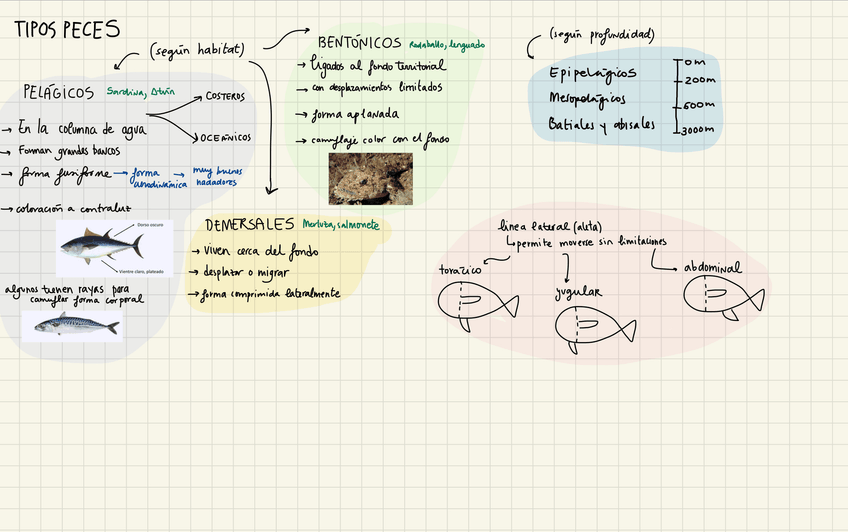 TIPOS PECES
(según habitat)
PELÁGICOS Sardina, Atún
→ En la columna de agua
COSTEROS
OCEÁNICOS
→ Forman grandes bancos
→ forma fusiforme → forma aerodinámica → muy buenos nadadores
→ coloración a contraluz
Dorso oscuro
Vientre claro, plateado
algunos tienen rayas para
camuflar forma corporal
BENTÓNICOS Rodaballo, lenguado
→ ligados al fondo territorial
→ con desplazamientos limitados
→ forma aplanada
→ camuflaje color con el fondo
DEMERSALES Merluza, salmonete
→ Viven cerca del fondo
→ desplazar o migrar
→ forma comprimida lateralmente
(según profundidad)
Epipelágicos
Mesopelágicos
Batiales y abisales
0m
200m
600m
3000m
línea lateral (aleta)
↳ permite moverse sin limitaciones
torácico
yugular
abdominal